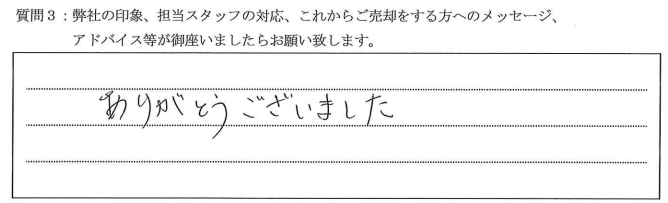 質問３：弊社の印象、担当スタッフの対応、これからご売却をする方へのメッセージ、
アドバイス等が御座いましたらお願い致します。
ありがとうございました